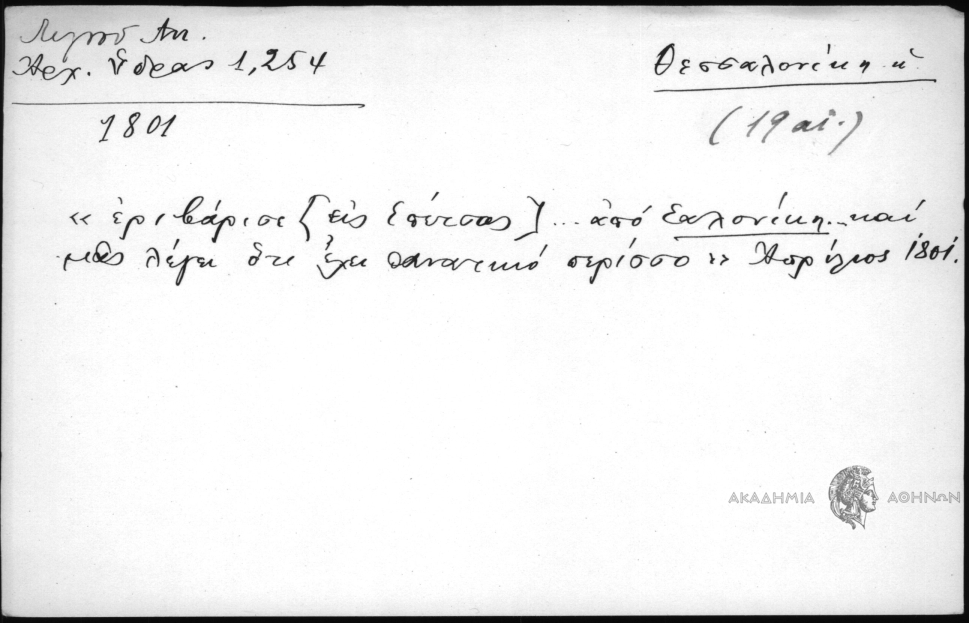 Λιγνοῦ Ἀν.
Ἀρχ. Ὕδρας 1,254
Θεσσαλονίκη ἡ
1801
(19 αἰ.)
«ἐριβάρισε [εἰς Σπέτσας] ... ἀπό Σαλονίκη.. καί
μᾶς λέγει ὅτι ἔχει θανατικό περίσσο» Ἀπρίλιος 1801.
ΑΚΑΔΗΜΙΑ ΑΘΗΝΩΝ